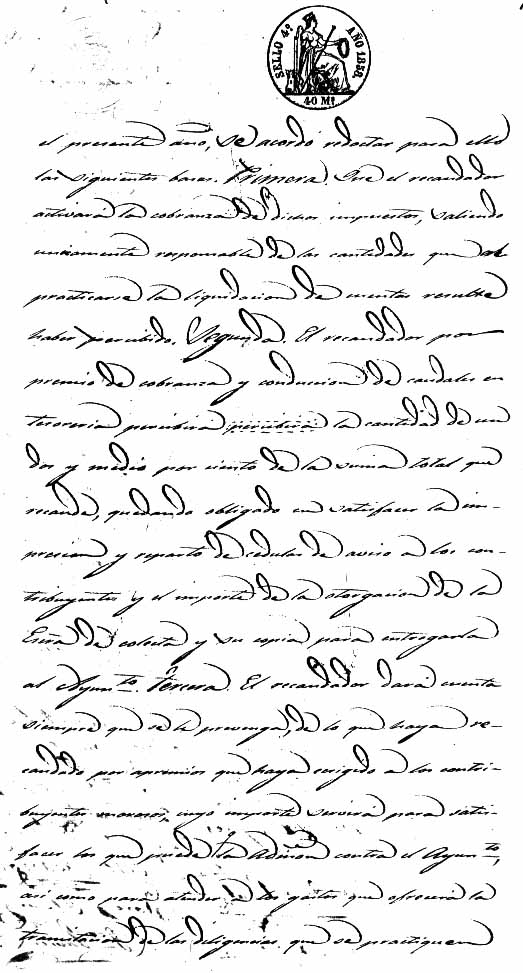 SELLO 4.º AÑO 1858.
40 Ms.
el presente año, se acordó redactar para ello
las siguientes bases. Primera. Que el recaudador
activará la cobranza de dichos impuestos, saliendo
unicamente responsable de las cantidades que al
practicarse la liquidacion de cuentas resulte
haber percibido. Segunda. El recaudador por
premio de cobranza y conduccion de caudales en
tesoreria percibirá percibirá la cantidad de un
dos y medio por ciento de la suma total que
recauda, quedando obligado en satisfacer la im-
presion y reparto de cedulas de aviso a los con-
tribuyentes y el importe de la otorgacion de la
Escra de colecta y su copia para entregarla
al Ayunto. Tercera. El recaudador dará cuenta
siempre que se le prevenga, de lo que haya re-
caudado por apremios que haya exigido a los contri-
buyentes morosos, cuyo importe servirá para satis-
facer los que pueda la Admon contra el Ayunto,
asi como para atender a los gastos que ofrecerá la
tramitacion de las diligencias que se practiquen